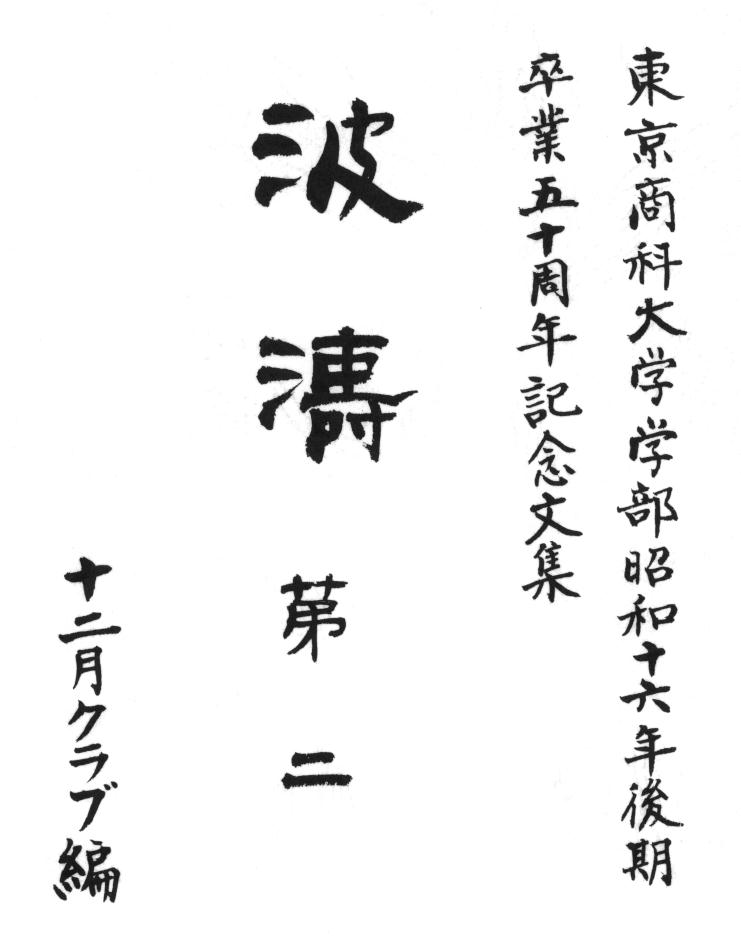 東京商科大学学部昭和十六年後期
卒業五十周年記念文集
波濤第二
十二月クラブ編